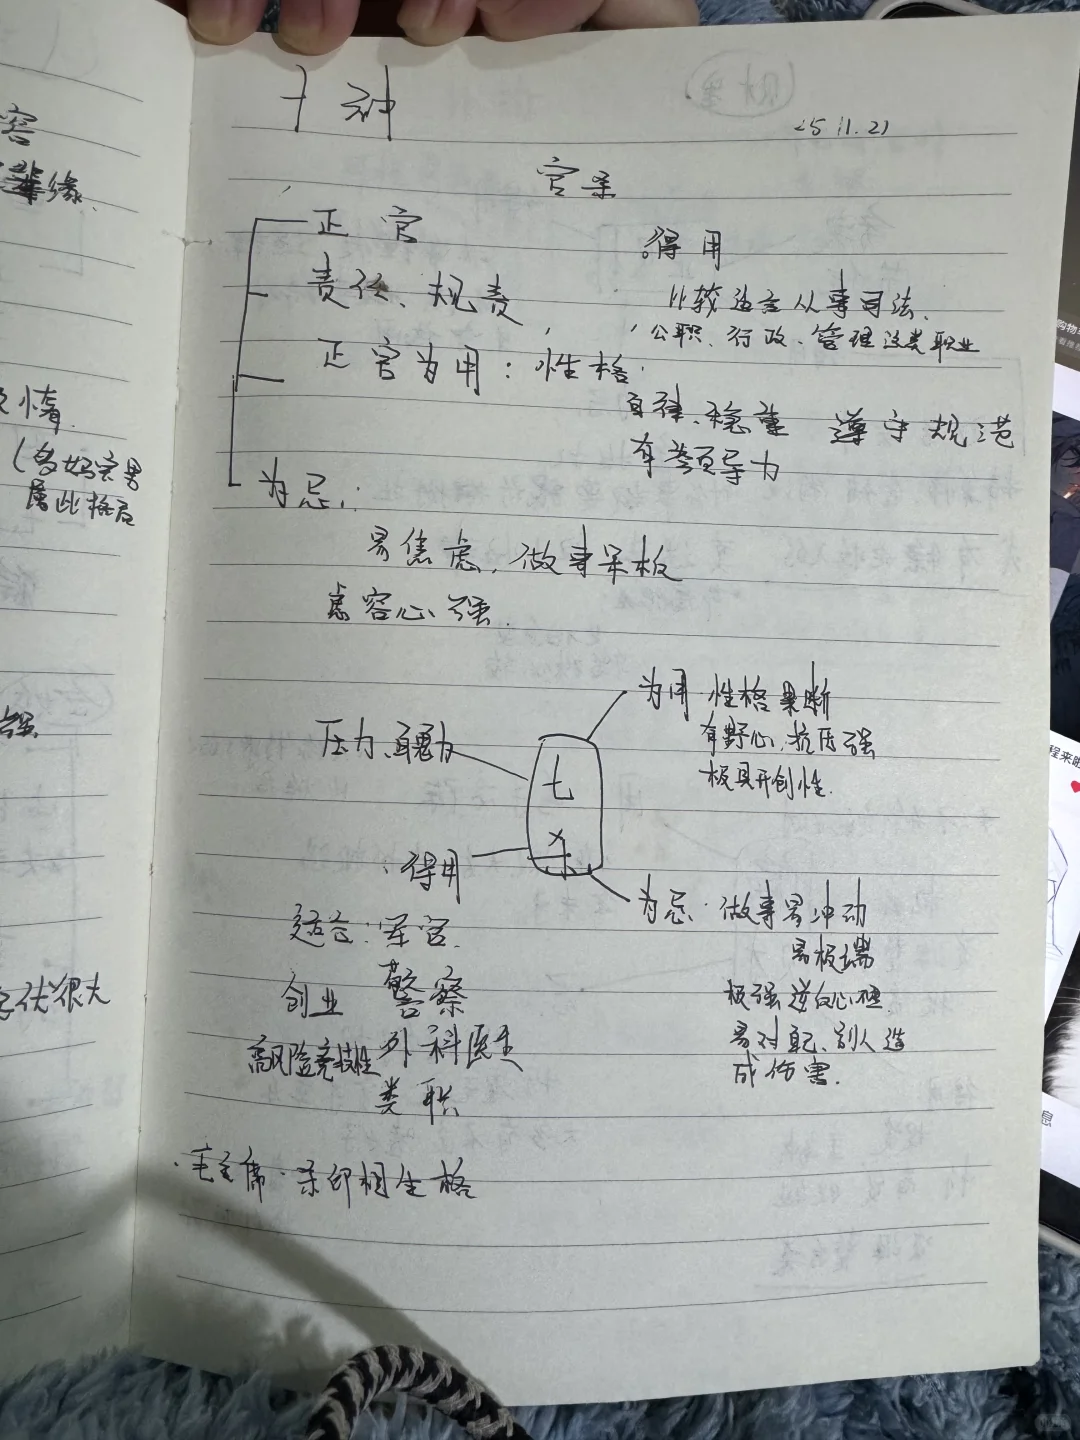 十神
25.11.21
官杀
正官
得用
责任、规责
比较适合从事司法、
公职、行政、管理这类职业
正官为用：性格
自律、稳重 遵守规范
有领导力
为忌：
易焦虑，做事呆板
虚容心强
为用 性格果断
有野心，抗压强
极具开创性
压力、魄力
七杀
得用
为忌：做事易冲动
易极端
极强逆反心理
易对自己、别人造
成伤害.
适合：军官.
创业 警察
高风险竞技性 外科医生
类职
毛主席·杀印相生格
容
缘.
情.
属此格局
很大